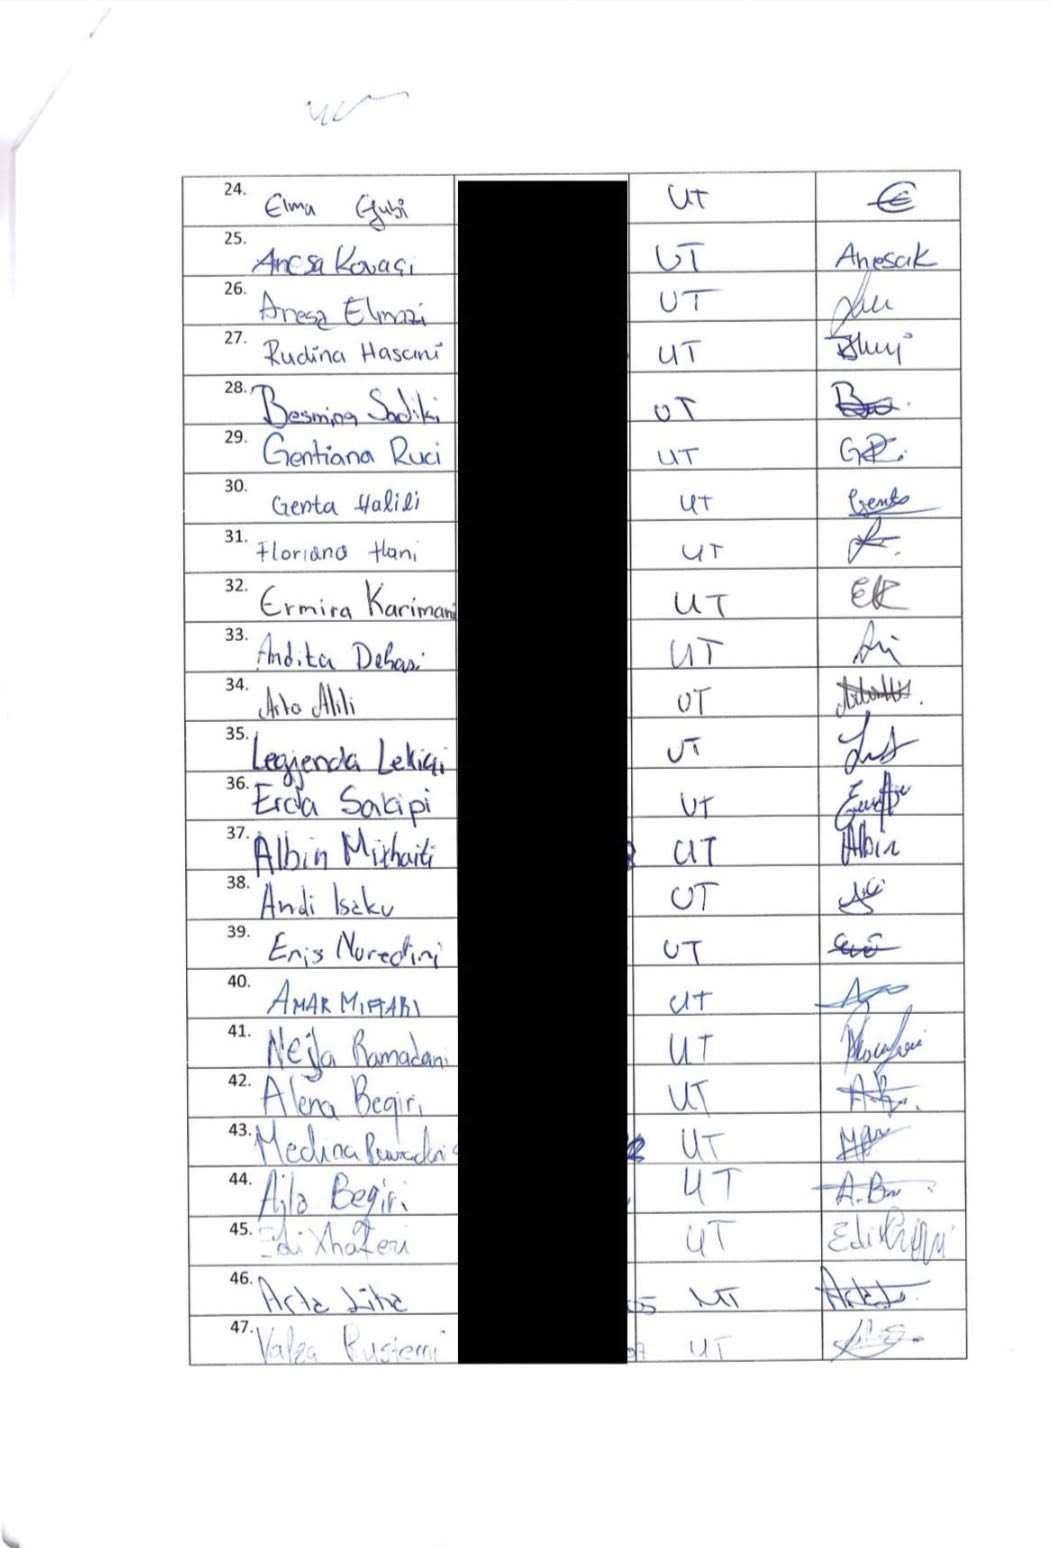 24. Elma Gjubi UT
25. Anesa Kovaçi UT Anesak
26. Anesa Elmazi UT
27. Rudina Hasani UT
28. Besmina Sadiki UT
29. Gentiana Ruci UT GR.
30. Genta Halili UT Genta
31. Floriana Hani UT
32. Ermira Karimani UT EK
33. Andita Debasi UT
34. Alili UT
35. Legjenda Lekiqi UT
36. Erda Sakipi UT
37. Albin UT Albin
38. Andi Iseku UT
39. Enis Nuredini UT
40. AMAR MIFTARI UT
41. Nejla Ramadani UT
42. Alena Beqiri UT
43. Medina UT
44. Ajla Beqiri UT A.B
45. Edi Xhaferi UT Edi
46. UT
47. Rustemi UT